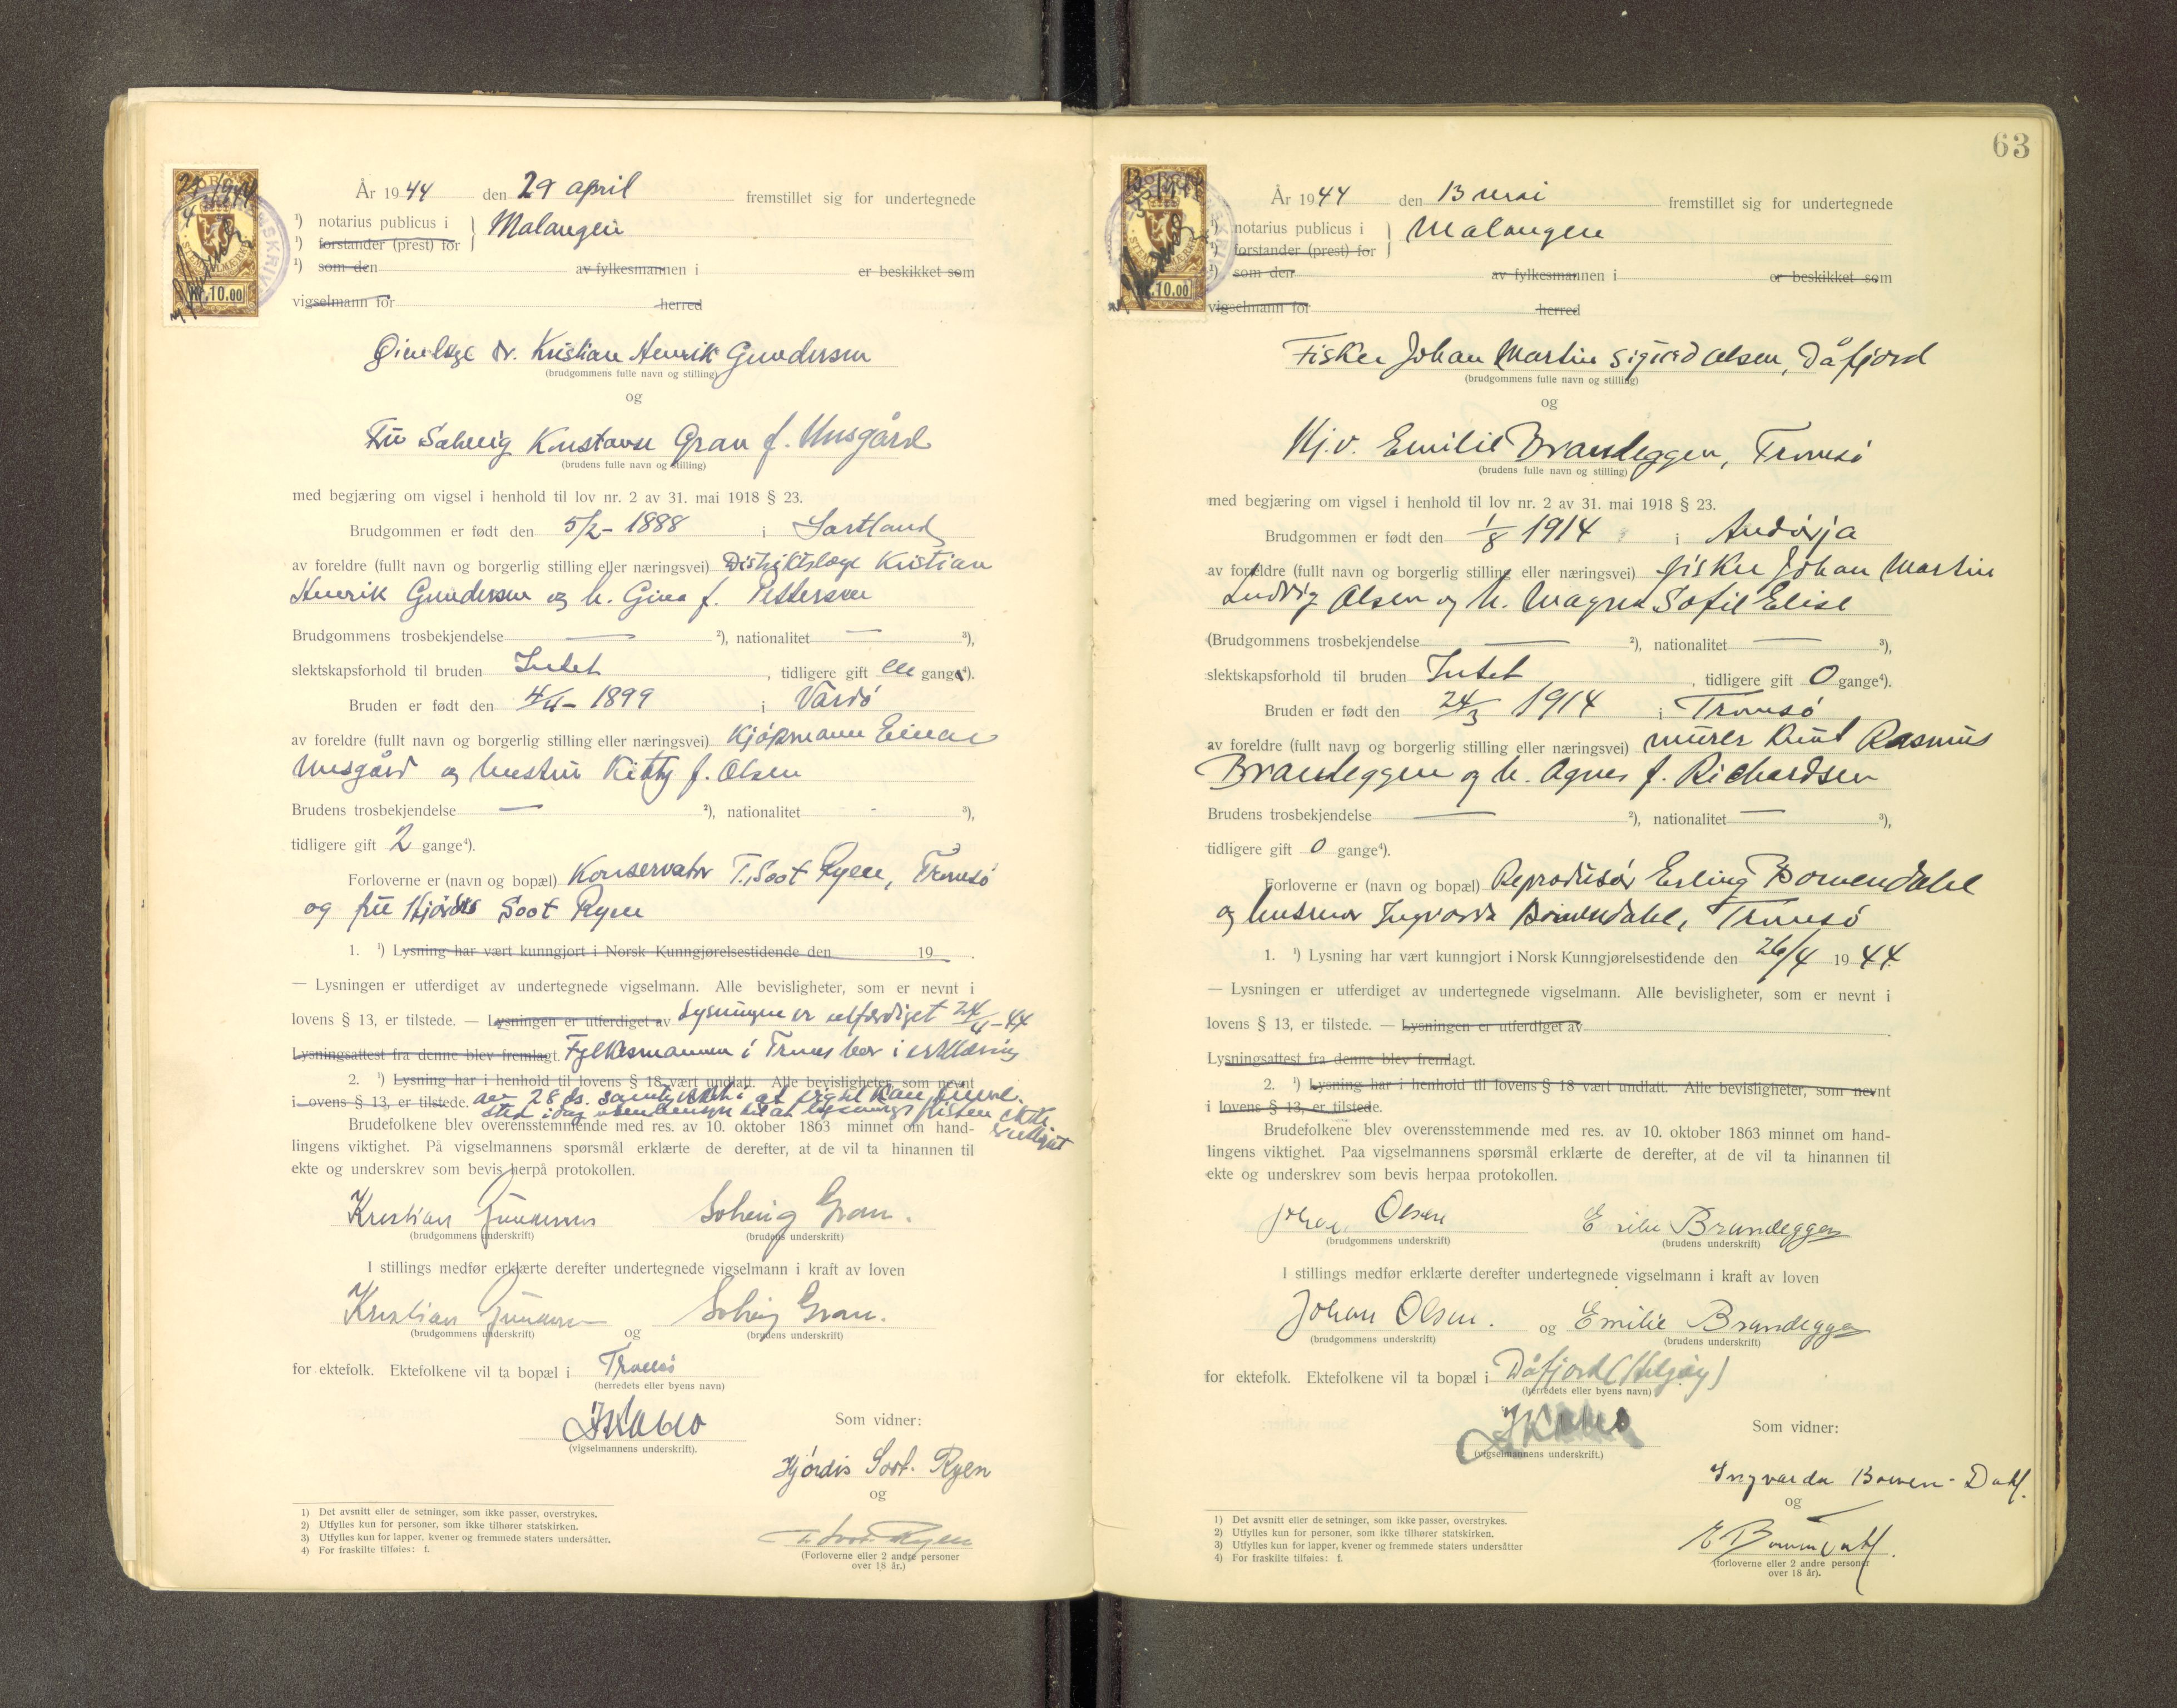 År 1944 den 29 april fremstillet sig for undertegnede
¹) notarius publicus i } Malangen
¹) forstander (prest) for
¹) som den av fylkesmannen i er beskikket som
vigselmann for herred
Øienlæge dr. Kristian Henrik Gundersen
(brudgommens fulle navn og stilling)
og
Fru Solveig Konstanse Gran f. Husgård
(brudens fulle navn og stilling)
med begjæring om vigsel i henhold til lov nr. 2 av 31. mai 1918 § 23.
Brudgommen er født den 5/2- 1888 i Sortland
av foreldre (fullt navn og borgerlig stilling eller næringsvei) Distriktslæge Kristian
Henrik Gundersen og h. Gina f. Pettersen
Brudgommens trosbekjendelse — ²), nationalitet — ³),
slektskapsforhold til bruden Intet , tidligere gift en gang⁴).
Bruden er født den 1899 i Vardö
av foreldre (fullt navn og borgerlig stilling eller næringsvei) Kjöpmann Einar
Husgård og hustru Kitty f. Olsen
Brudens trosbekjendelse — ²), nationalitet - ³),
tidligere gift 2 gange⁴).
Forloverne er (navn og bopæl) Konservator T. Soot Ryen, Tromsö
og fru Hjördis Soot Ryen
1. ¹) Lysning har vært kunngjort i Norsk Kunngjørelsestidende den 19 .
— Lysningen er utferdiget av undertegnede vigselmann. Alle bevisligheter, som er nevnt i
lovens § 13, er tilstede. — Lysningen er utferdiget av Lysningen er utferdiget 24/4-44
Lysningsattest fra denne blev fremlagt. Fylkesmannen i Troms har i erklæring
2. ¹) Lysning har i henhold til lovens § 18 vært undlatt. Alle bevisligheter, som nevnt
i lovens § 13, er tilstede. av 28 ds. samtykket i at vigsel kan finne
sted idag uten hensyn til at lysningsfristen ikke
er utløpt
Brudefolkene blev overensstemmende med res. av 10. oktober 1863 minnet om hand-
lingens viktighet. På vigselmannens spørsmål erklærte de derefter, at de vil ta hinannen til
ekte og underskrev som bevis herpå protokollen.
Kristian Gundersen Solveig Gran.
(brudgommens underskrift) (brudens underskrift)
I stillings medfør erklærte derefter undertegnede vigselmann i kraft av loven
Kristian Gundersen og Solveig Gran.
(brudgommens underskrift) (brudens underskrift)
for ektefolk. Ektefolkene vil ta bopæl i Tromsö
(herredets eller byens navn)
Som vidner:
(vigselmannens underskrift).
Hjördis Soot-Ryen
og
T. Soot-Ryen
(Forloverne eller 2 andre personer
over 18 år.)
1) Det avsnitt eller de setninger, som ikke passer, overstrykes.
2) Utfylles kun for personer, som ikke tilhører statskirken.
3) Utfylles kun for lapper, kvener og fremmede staters undersåtter.
4) For fraskilte tilføies: f.
63
År 1944 den 13 mai fremstillet sig for undertegnede
¹) notarius publicus i } Malangen
¹) forstander (prest) for
¹) som den av fylkesmannen i er beskikket som
vigselmann for herred
Fisker Johan Martin Sigurd Olsen, Dåfjord
(brudgommens fulle navn og stilling)
og
Hj.v. Emilie Brandeggen, Tromsö
(brudens fulle navn og stilling)
med begjæring om vigsel i henhold til lov nr. 2 av 31. mai 1918 § 23.
Brudgommen er født den 1/8 1914 i Andörja
av foreldre (fullt navn og borgerlig stilling eller næringsvei) fisker Johan Martin
Ludvig Olsen og h. Magna Sofie Elise
(Brudgommens trosbekjendelse — ²), nationalitet — ³),
slektskapsforhold til bruden Intet , tidligere gift 0 gange⁴).
Bruden er født den 24/3 1914 i Tromsö
av foreldre (fullt navn og borgerlig stilling eller næringsvei) murer Knut Rasmus
Brandeggen og h. Agnes f. Richardsen
Brudens trosbekjendelse — ²), nationalitet — ³),
tidligere gift 0 gange⁴).
Forloverne er (navn og bopæl) Reprodusör Erling Bowendahl
og husmor Ingvarda Bowendahl, Tromsö
1. ¹) Lysning har vært kunngjort i Norsk Kunngjørelsestidende den 26/4 1944.
— Lysningen er utferdiget av undertegnede vigselmann. Alle bevisligheter, som er nevnt i
lovens § 13, er tilstede. — Lysningen er utferdiget av
Lysningsattest fra denne blev fremlagt.
2. ¹) Lysning har i henhold til lovens § 18 vært undlatt. Alle bevisligheter, som nevnt
i lovens § 13, er tilstede.
Brudefolkene blev overensstemmende med res. av 10. oktober 1863 minnet om hand-
lingens viktighet. Paa vigselmannens spørsmål erklærte de derefter, at de vil ta hinannen til
ekte og underskrev som bevis herpaa protokollen.
Johan Olsen Emilie Brandeggen
(brudgommens underskrift) (brudens underskrift)
I stillings medfør erklærte derefter undertegnede vigselmann i kraft av loven
Johan Olsen. og Emilie Brandeggen
(brudgommens underskrift) (brudens underskrift)
for ektefolk. Ektefolkene vil ta bopæl i Dåfjord (Helgöy)
(herredets eller byens navn)
Som vidner:
(vigselmannens underskrift.)
Ingvarda Bowen-Dahl.
og
E Bowen Dahl.
(forloverne eller 2 andre personer
over 18 år).
1) Det avsnitt eller de setninger, som ikke passer, overstrykes.
2) Utfylles kun for personer, som ikke tilhører statskirken.
3) Utfylles kun for lapper, kvener og fremmede staters undersåtter
4) For fraskilte tilføies: f.